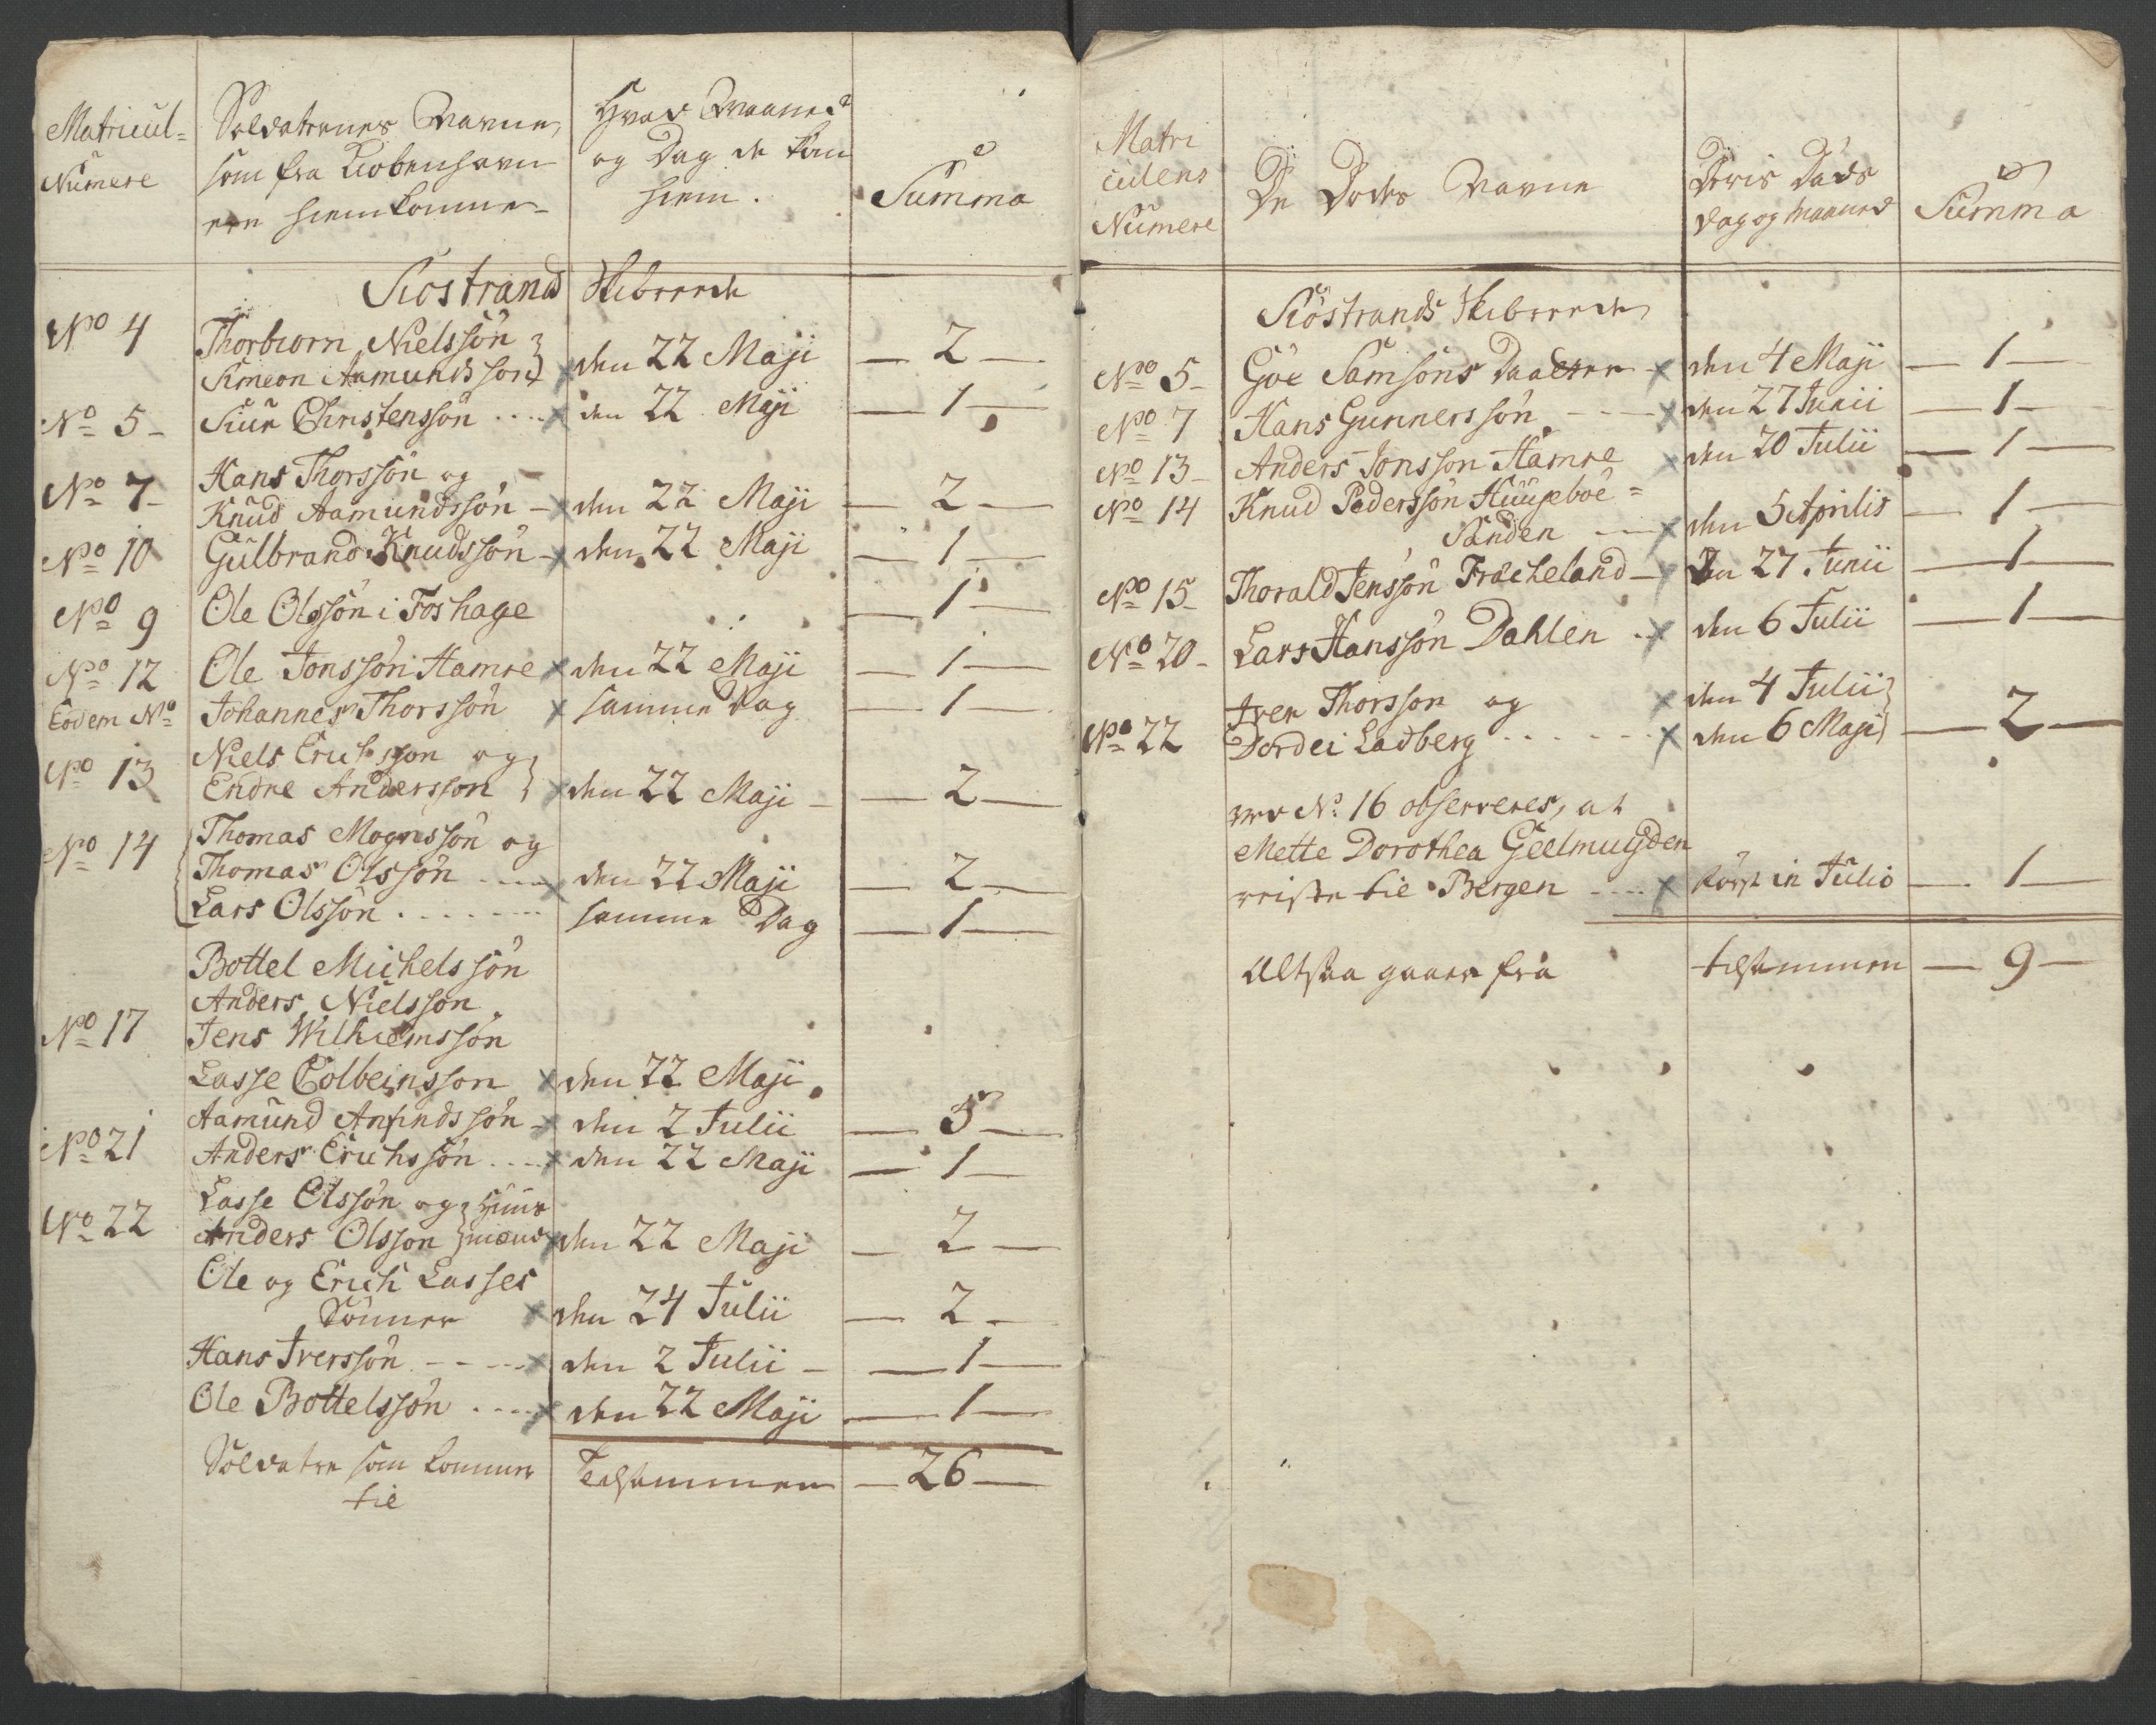 Matricul=
Numere
Soldaternes Navne,
som fra Kiøbenhavn
ere hiemkomne
Hvad Maaned
og Dag de kom
hiem.
Summa
Siostrand Skibrede
No 4 Thorbiorn Nielssøn
Simeon Aamundsson den 22 Maji — 2 —
No 5 Siur Christenssøn .... den 22 Maji — 1 —
Hans Thorssøn og
No 7 Knud Aamundssøn — den 22 Maji — 2 —
No 10 Gulbrand Knudssøn — den 22 Maji — 1 —
No 9 Ole Olssøn i Foshage — 1 —
No 12 Ole Jonssøn Hamre den 22 Maji — 1 —
Eodem No Johannes Thorssøn samme Dag — 1 —
Niels Erichsson og
No 13 Endre Andersson den 22 Maji — 2 —
No 14 Thomas Mognssøn og
Thomas Olssøn .... den 22 Maji — 2 —
Lars Olssøn ........ samme Dag — 1 —
Bottel Michelssøn
Anders Nielsson
No 17 Jens Wilhiemssøn
Lasse Colbeinsson den 22 Maji
Aamund Anfindssøn den 2 Julii — 5 —
No 21 Anders Erichssøn .... den 22 Maji — 1 —
Lasse Olssøn og
No 22 Anders Olsson den 22 Maji — 2 —
Ole og Erich Lasses
Sønner den 24 Julii — 2 —
Hans Iverssøn ---- den 2 Julii — 1 —
Ole Bottelssøn .... den 22 Maji — 1 —
Soldater som kommer Tilsammen — 26 —
til
Matri
culens
Numere
De Dødes Navne
Deris Døds
Dag og Maaned
Summa
Siöstrands Skibrede
No 5 Göe Samsøns Daatter den 4 Maji — 1 —
No 7 Hans Gunnerssøn ---- den 27 Junii — 1 —
No 13 Anders Jonsson Hamre den 20 Julii — 1 —
No 14 Knud Pederssøn Huuseboe=
Sanden — den 5 Aprilis — 1 —
No 15 Thorald Jenssøn Frøcheland — Den 27 Junii — 1 —
No 20 Lars Hanssøn Dahlen .. den 6 Julii — 1 —
Iver Thorsson og den 4 Julii
No 22 Dordei Ladberg ....... den 6 Maji — 2 —
ved No 16 observeres, at
Mette Dorothea Geelmuyden
reiste til Bergen .... først in Julio — 1 —
Altsaa gaaer fra tilsammen — 9 —